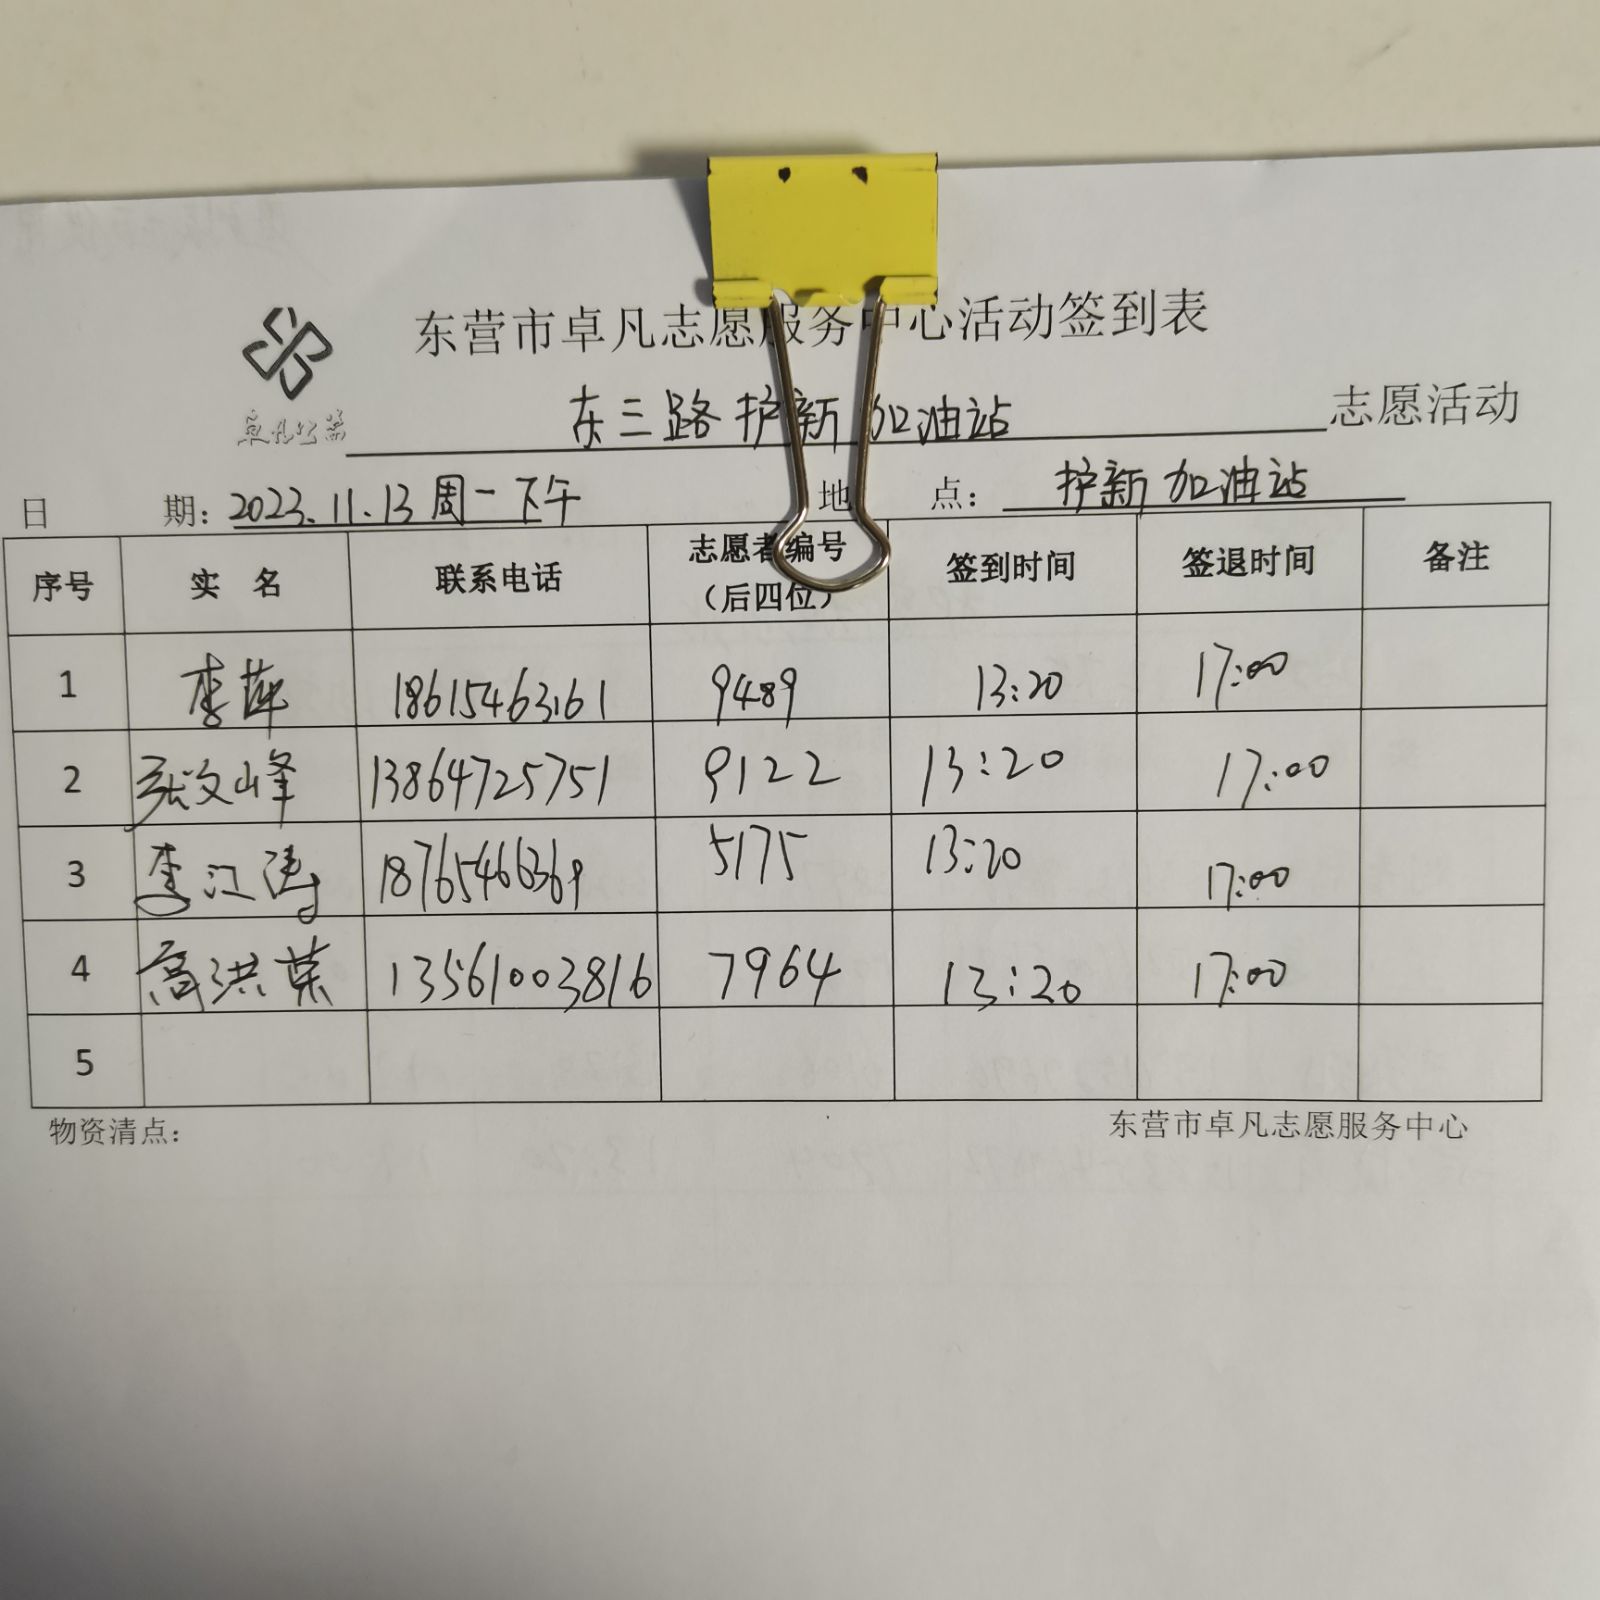 东营市卓凡志愿服务中心活动签到表
卓凡公益
东三路护新加油站 志愿活动
日 期：2023.11.13 周一下午 地 点：护新加油站
序号 实 名 联系电话 志愿者编号（后四位） 签到时间 签退时间 备注
1 李萍 18615463161 9489 13:20 17:00
2 张文峰 13864725751 9122 13:20 17:00
3 李江涛 18765466369 5175 13:20 17:00
4 高洪菜 13561003816 7964 13:20 17:00
5
物资清点： 东营市卓凡志愿服务中心